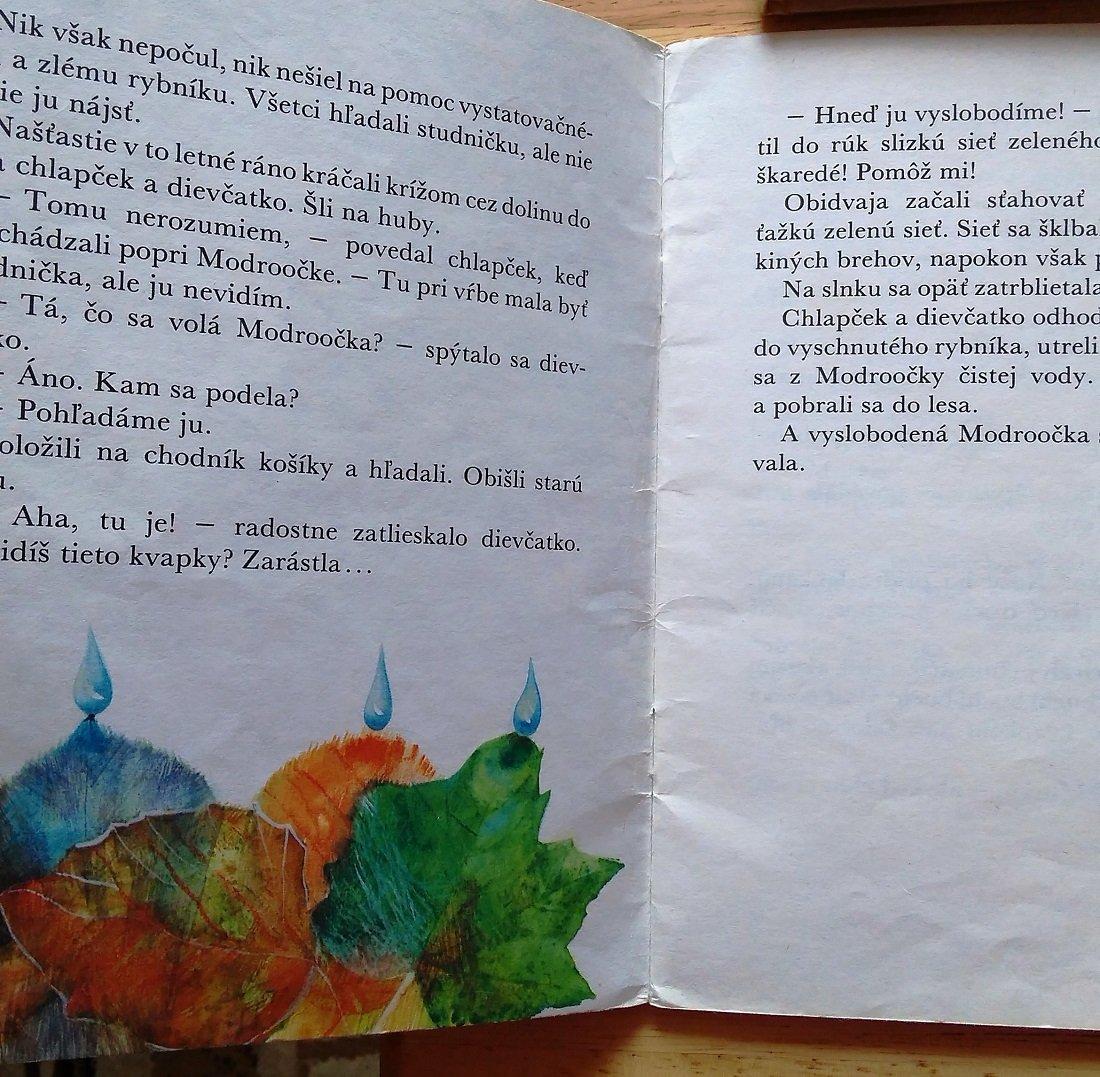 Nik však nepočul, nik nešiel na pomoc vystatovačné-
a zlému rybníku. Všetci hľadali studničku, ale nie
ie ju nájsť.
Našťastie v to letné ráno kráčali krížom cez dolinu do
chlapček a dievčatko. Šli na huby.
– Tomu nerozumiem, – povedal chlapček, keď
chádzali popri Modroočke. – Tu pri vŕbe mala byť
dnička, ale ju nevidím.
– Tá, čo sa volá Modroočka? – spýtalo sa diev-
ko.
– Áno. Kam sa podela?
– Pohľadáme ju.
oložili na chodník košíky a hľadali. Obišli starú
u.
Aha, tu je! – radostne zatlieskalo dievčatko.
idíš tieto kvapky? Zarástla...
– Hneď ju vyslobodíme! –
til do rúk slizkú sieť zeleného
škaredé! Pomôž mi!
Obidvaja začali sťahovať
ťažkú zelenú sieť. Sieť sa šklba
kiných brehov, napokon však p
Na slnku sa opäť zatrblietala
Chlapček a dievčatko odhod
do vyschnutého rybníka, utreli
sa z Modroočky čistej vody.
a pobrali sa do lesa.
A vyslobodená Modroočka s
vala.